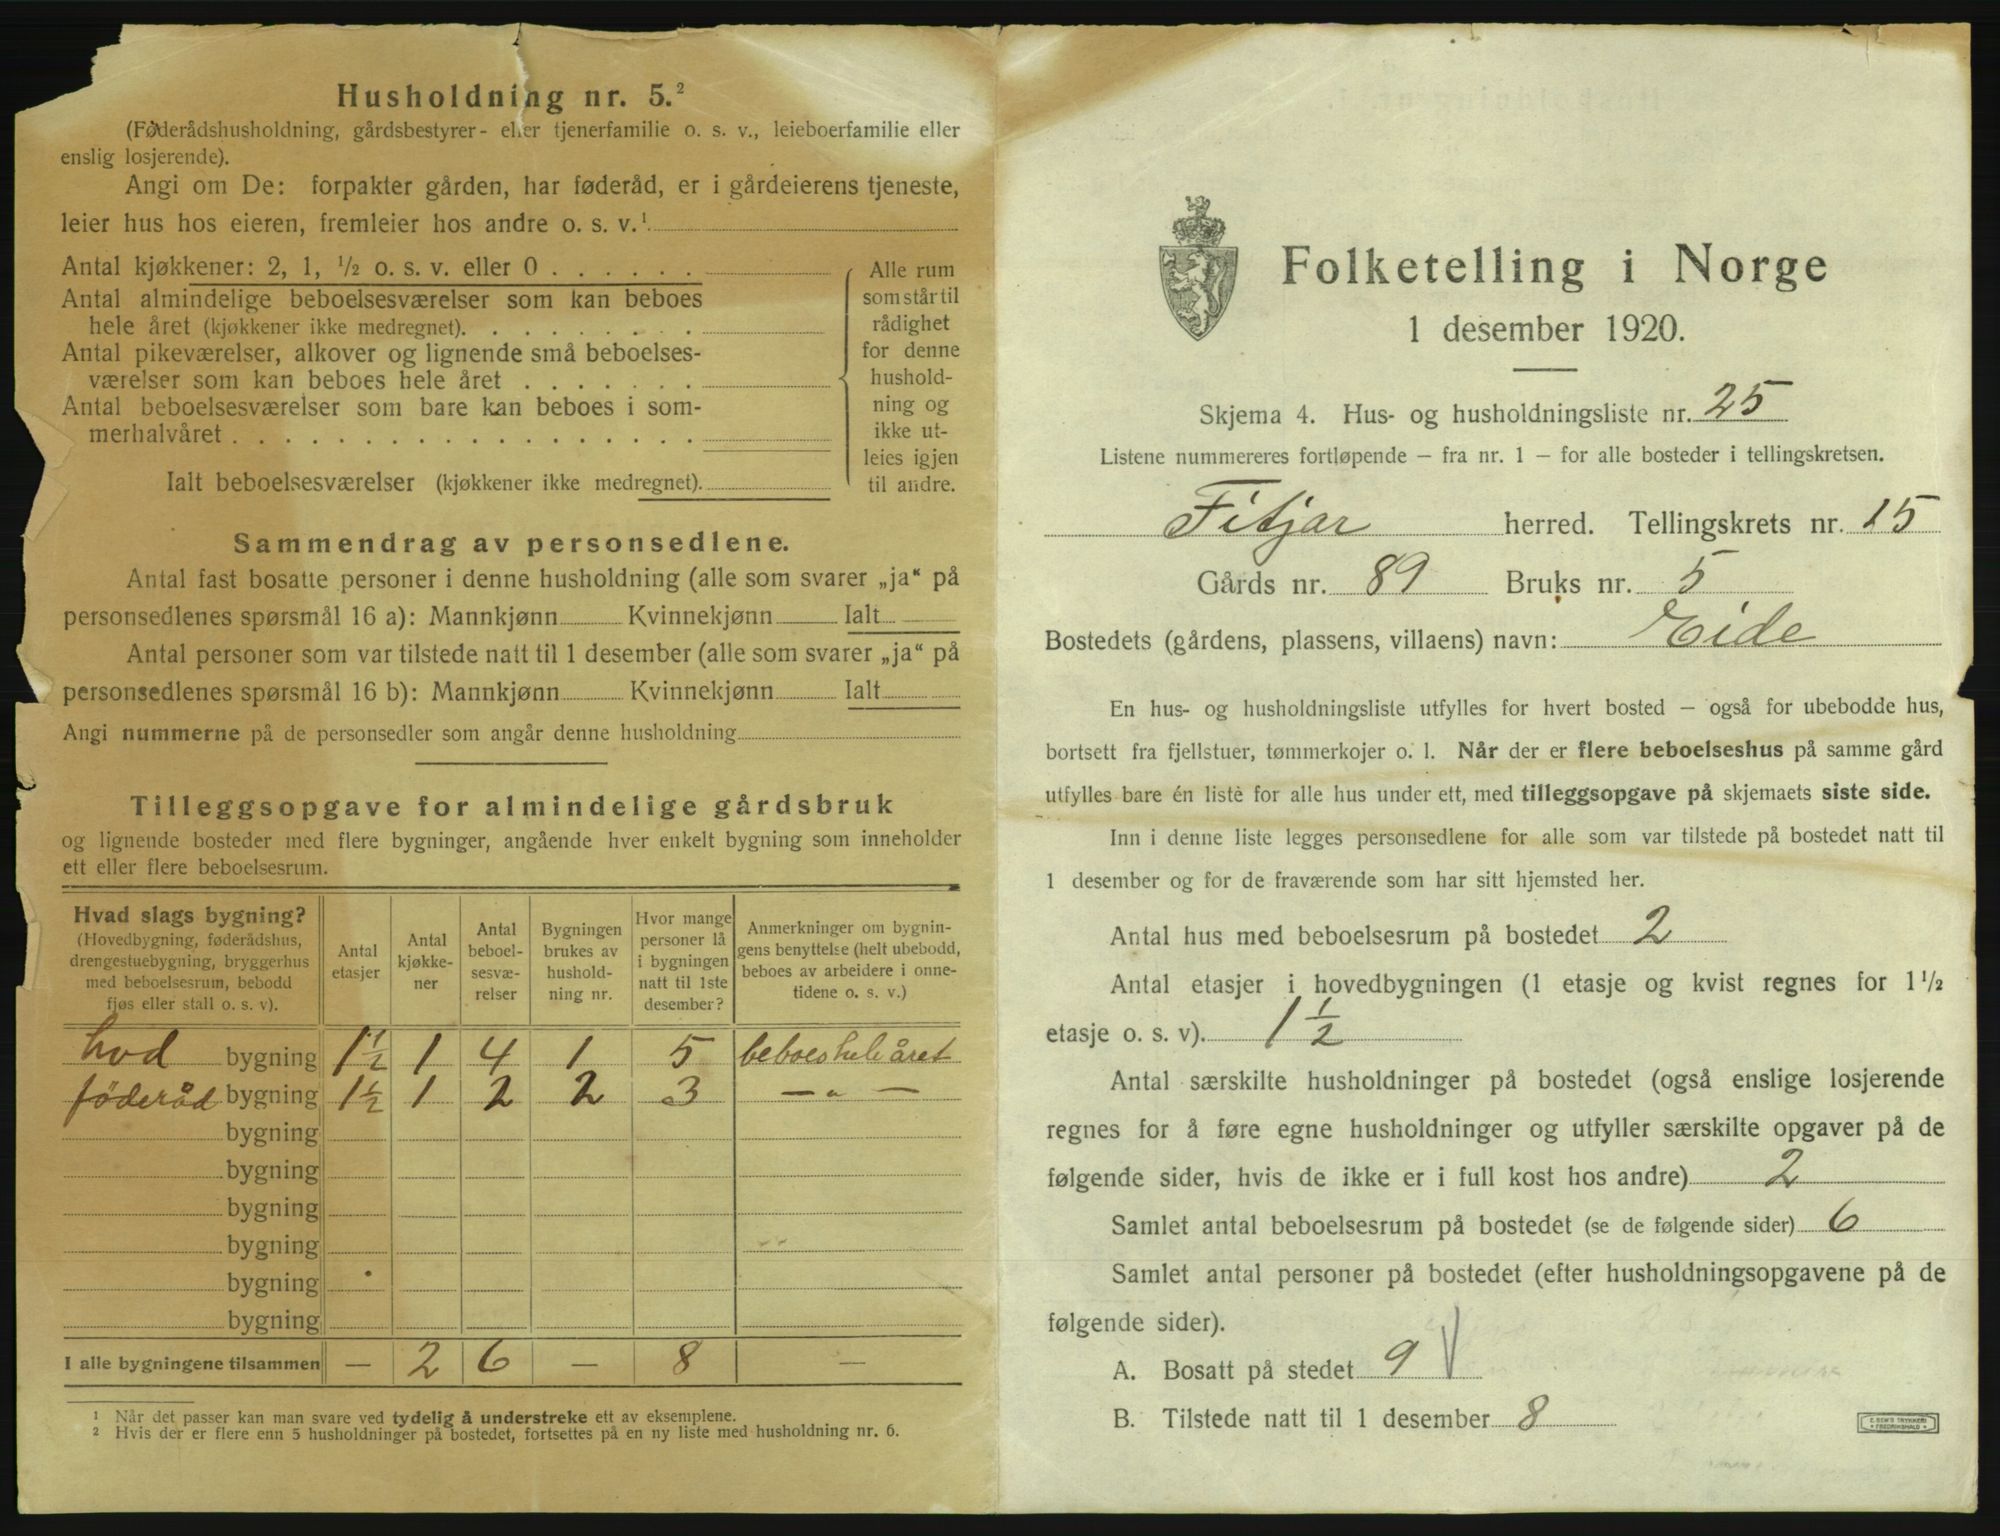 Husholdning nr. 5.²
(Føderådshusholdning, gårdsbestyrer- eller tjenerfamilie o. s. v., leieboerfamilie eller
enslig losjerende).
Angi om De: forpakter gården, har føderåd, er i gårdeierens tjeneste,
leier hus hos eieren, fremleier hos andre o. s. v.¹
Antal kjøkkener: 2, 1, ½ o. s. v. eller 0 . . . . . .
Antal almindelige beboelsesværelser som kan beboes
hele året (kjøkkener ikke medregnet). . . . . . . . .
Antal pikeværelser, alkover og lignende små beboelses-
værelser som kan beboes hele året . . . . . . .
Antal beboelsesværelser som bare kan beboes i som-
merhalvåret . . . . . . . . . . . . . . . . . .
Ialt beboelsesværelser (kjøkkener ikke medregnet).
Alle rum
som står til
rådighet
for denne
hushold-
ning og
ikke ut-
leies igjen
til andre.
Sammendrag av personsedlene.
Antal fast bosatte personer i denne husholdning (alle som svarer „ja“ på
personsedlenes spørsmål 16 a): Mannkjønn Kvinnekjønn Ialt
Antal personer som var tilstede natt til 1 desember (alle som svarer „ja“ på
personsedlenes spørsmål 16 b): Mannkjønn Kvinnekjønn Ialt
Angi nummerne på de personsedler som angår denne husholdning
Tilleggsopgave for almindelige gårdsbruk
og lignende bosteder med flere bygninger, angående hver enkelt bygning som inneholder
ett eller flere beboelsesrum.
Hvad slags bygning?
(Hovedbygning, føderådshus,
drengestuebygning, bryggerhus
med beboelsesrum, bebodd
fjøs eller stall o. s. v).
Antal
etasjer
Antal
kjøkke-
ner
Antal
beboel-
sesvæ-
relser
Bygningen
brukes av
hushold-
ning nr.
Hvor mange
personer lå
i bygningen
natt til 1ste
desember?
Anmerkninger om bygnin-
gens benyttelse (helt ubebodd,
beboes av arbeidere i onne-
tidene o. s. v.)
hvd bygning 1½ 1 4 1 5 beboes hele året
föderåd bygning 1½ 1 2 2 3 — „ —
bygning
bygning
bygning
bygning
bygning
bygning
I alle bygningene tilsammen — 2 6 — 8 —
¹ Når det passer kan man svare ved tydelig å understreke ett av eksemplene.
² Hvis der er flere enn 5 husholdninger på bostedet, fortsettes på en ny liste med husholdning nr. 6.
Folketelling i Norge
1 desember 1920.
Skjema 4. Hus- og husholdningsliste nr. 25
Listene nummereres fortløpende – fra nr. 1 – for alle bosteder i tellingskretsen.
Fitjar herred. Tellingskrets nr. 15
Gårds nr. 89 Bruks nr. 5
Bostedets (gårdens, plassens, villaens) navn: Eide
En hus- og husholdningsliste utfylles for hvert bosted – også for ubebodde hus,
bortsett fra fjellstuer, tømmerkojer o. l. Når der er flere beboelseshus på samme gård
utfylles bare én liste for alle hus under ett, med tilleggsopgave på skjemaets siste side.
Inn i denne liste legges personsedlene for alle som var tilstede på bostedet natt til
1 desember og for de fraværende som har sitt hjemsted her.
Antal hus med beboelsesrum på bostedet 2
Antal etasjer i hovedbygningen (1 etasje og kvist regnes for 1½
etasje o. s. v). 1½
Antal særskilte husholdninger på bostedet (også enslige losjerende
regnes for å føre egne husholdninger og utfyller særskilte opgaver på de
følgende sider, hvis de ikke er i full kost hos andre) 2
Samlet antal beboelsesrum på bostedet (se de følgende sider) 6
Samlet antal personer på bostedet (efter husholdningsopgavene på de
følgende sider).
A. Bosatt på stedet 9
B. Tilstede natt til 1 desember 8